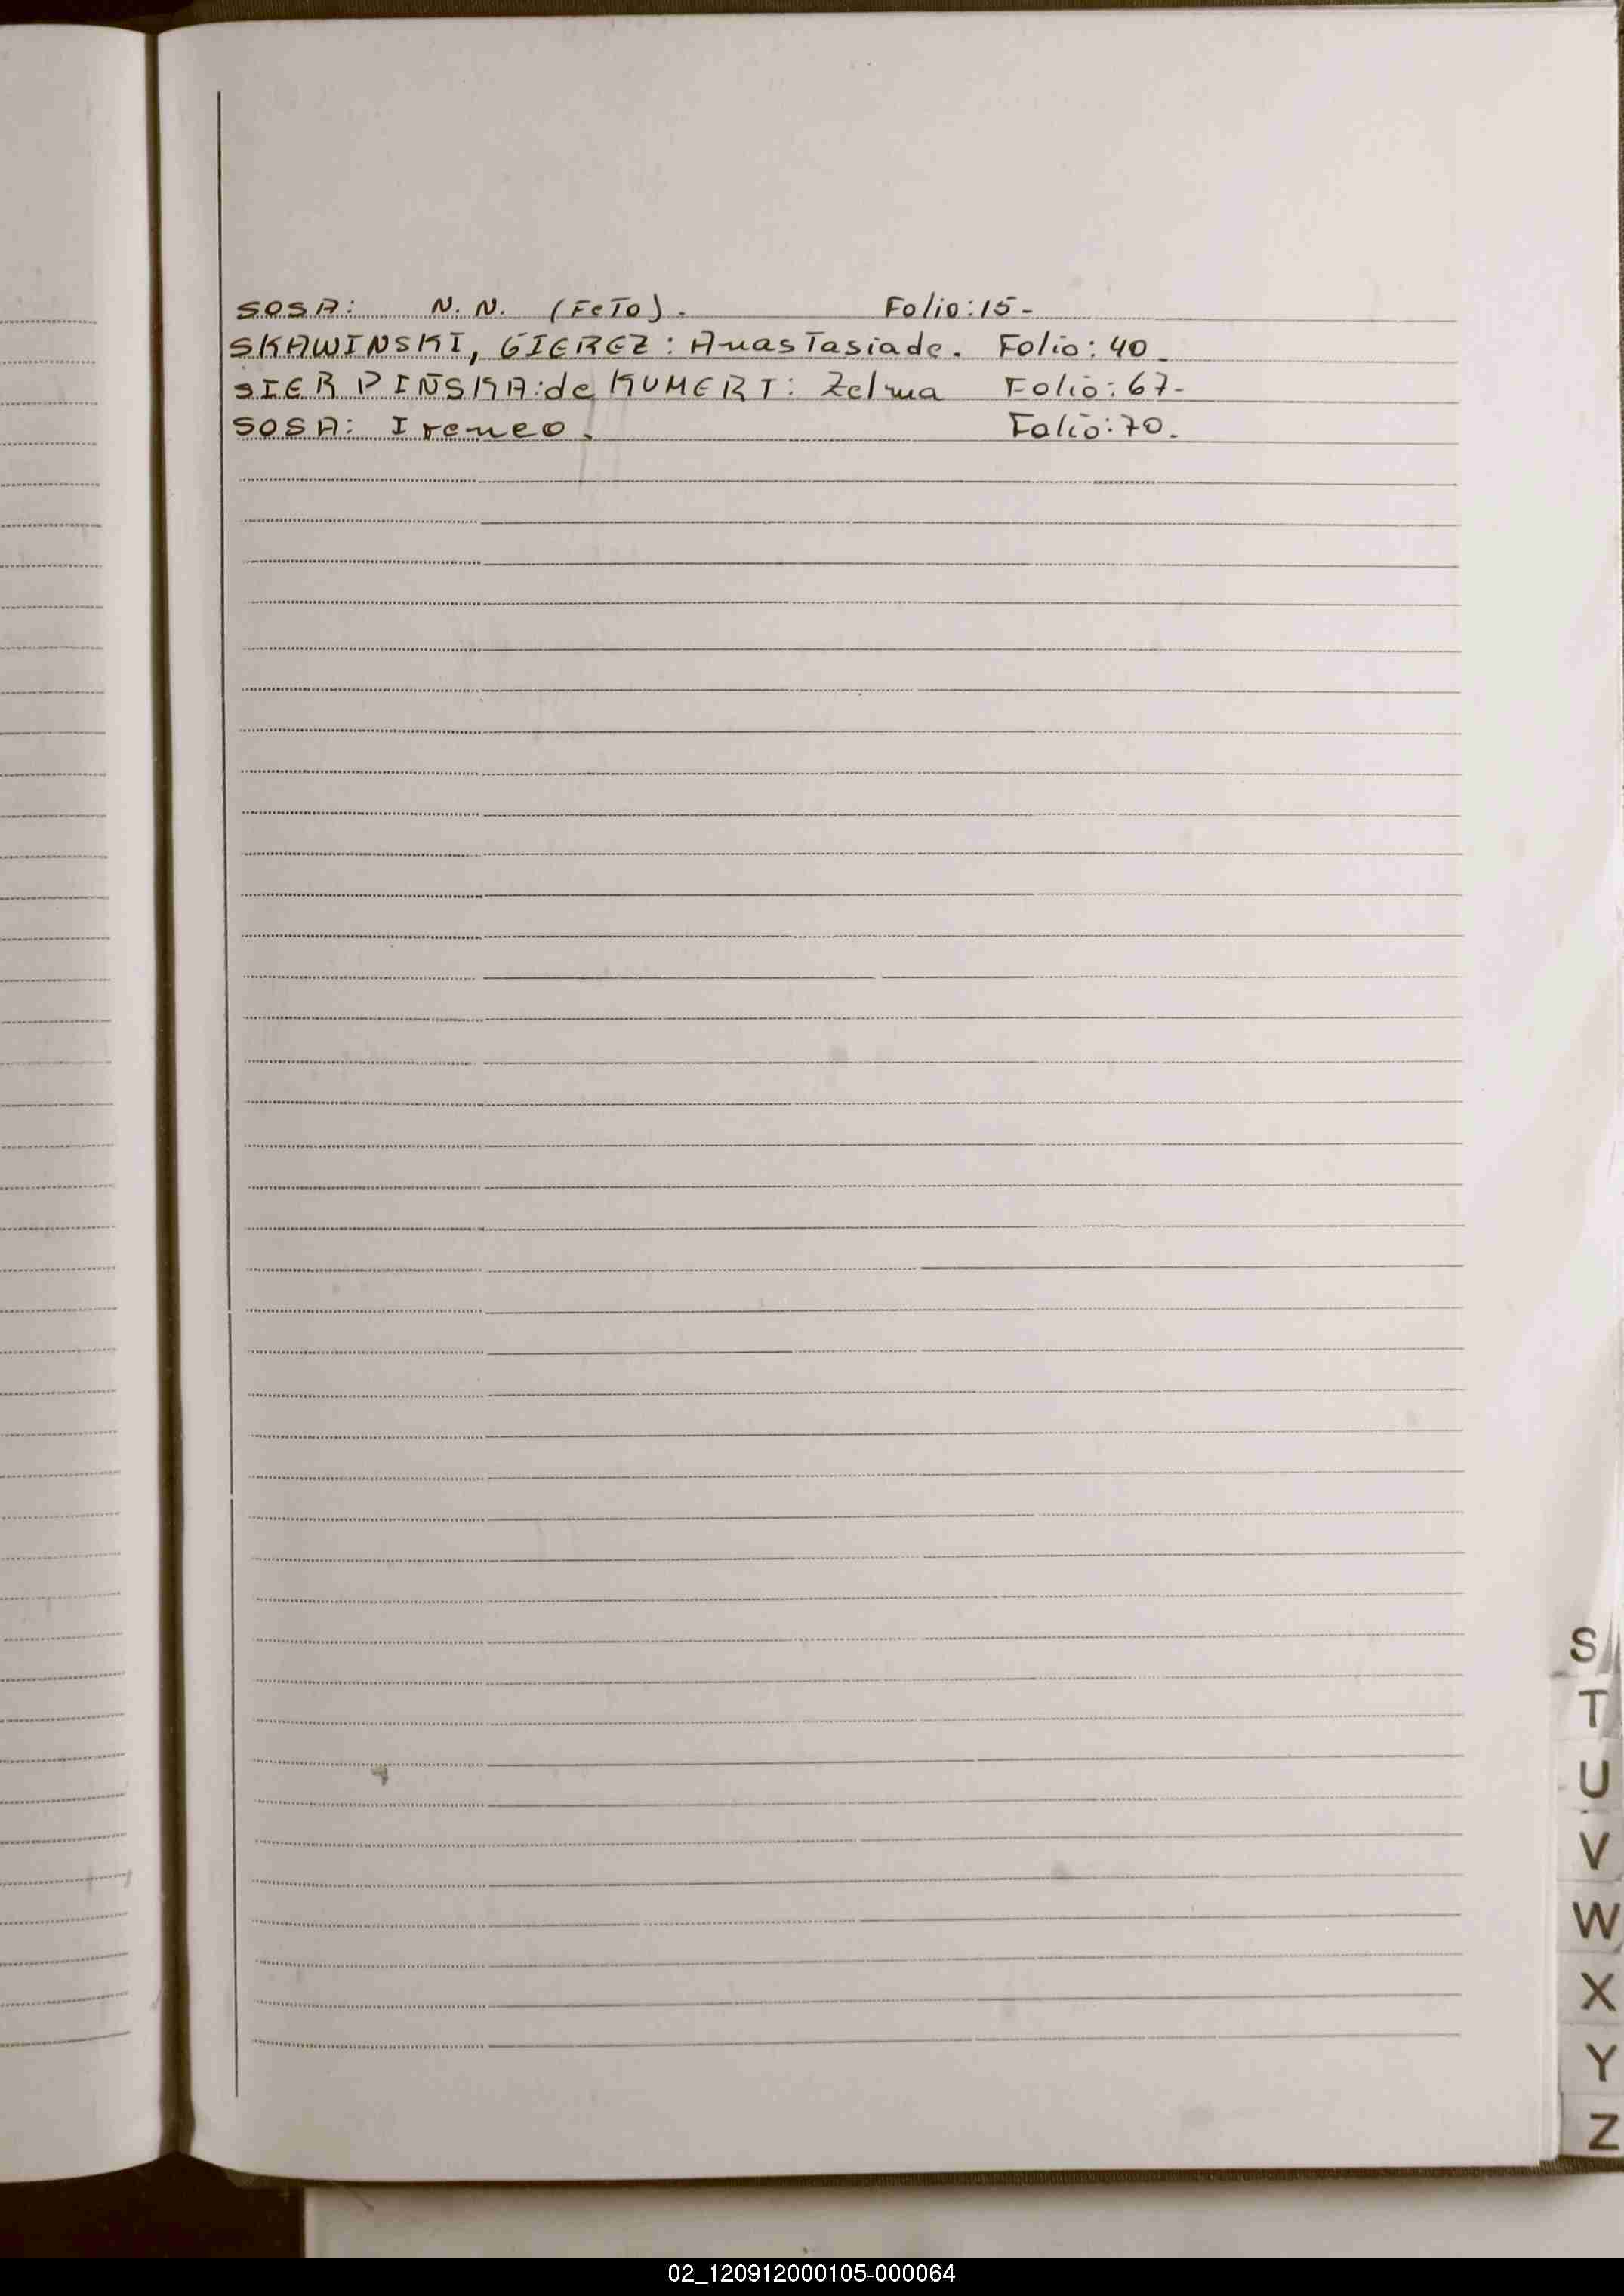 SOSA: N.N. (FeTo). Folio:15-
SKAWINSKI, GIEREZ: AnasTasiade. Folio: 40.
SIERPINSKA: de KUMERT: Zelma Folio: 67-
SOSA: Ireneo. Folio:70.
S
T
U
V
W
X
Y
Z
02_120912000105-000064